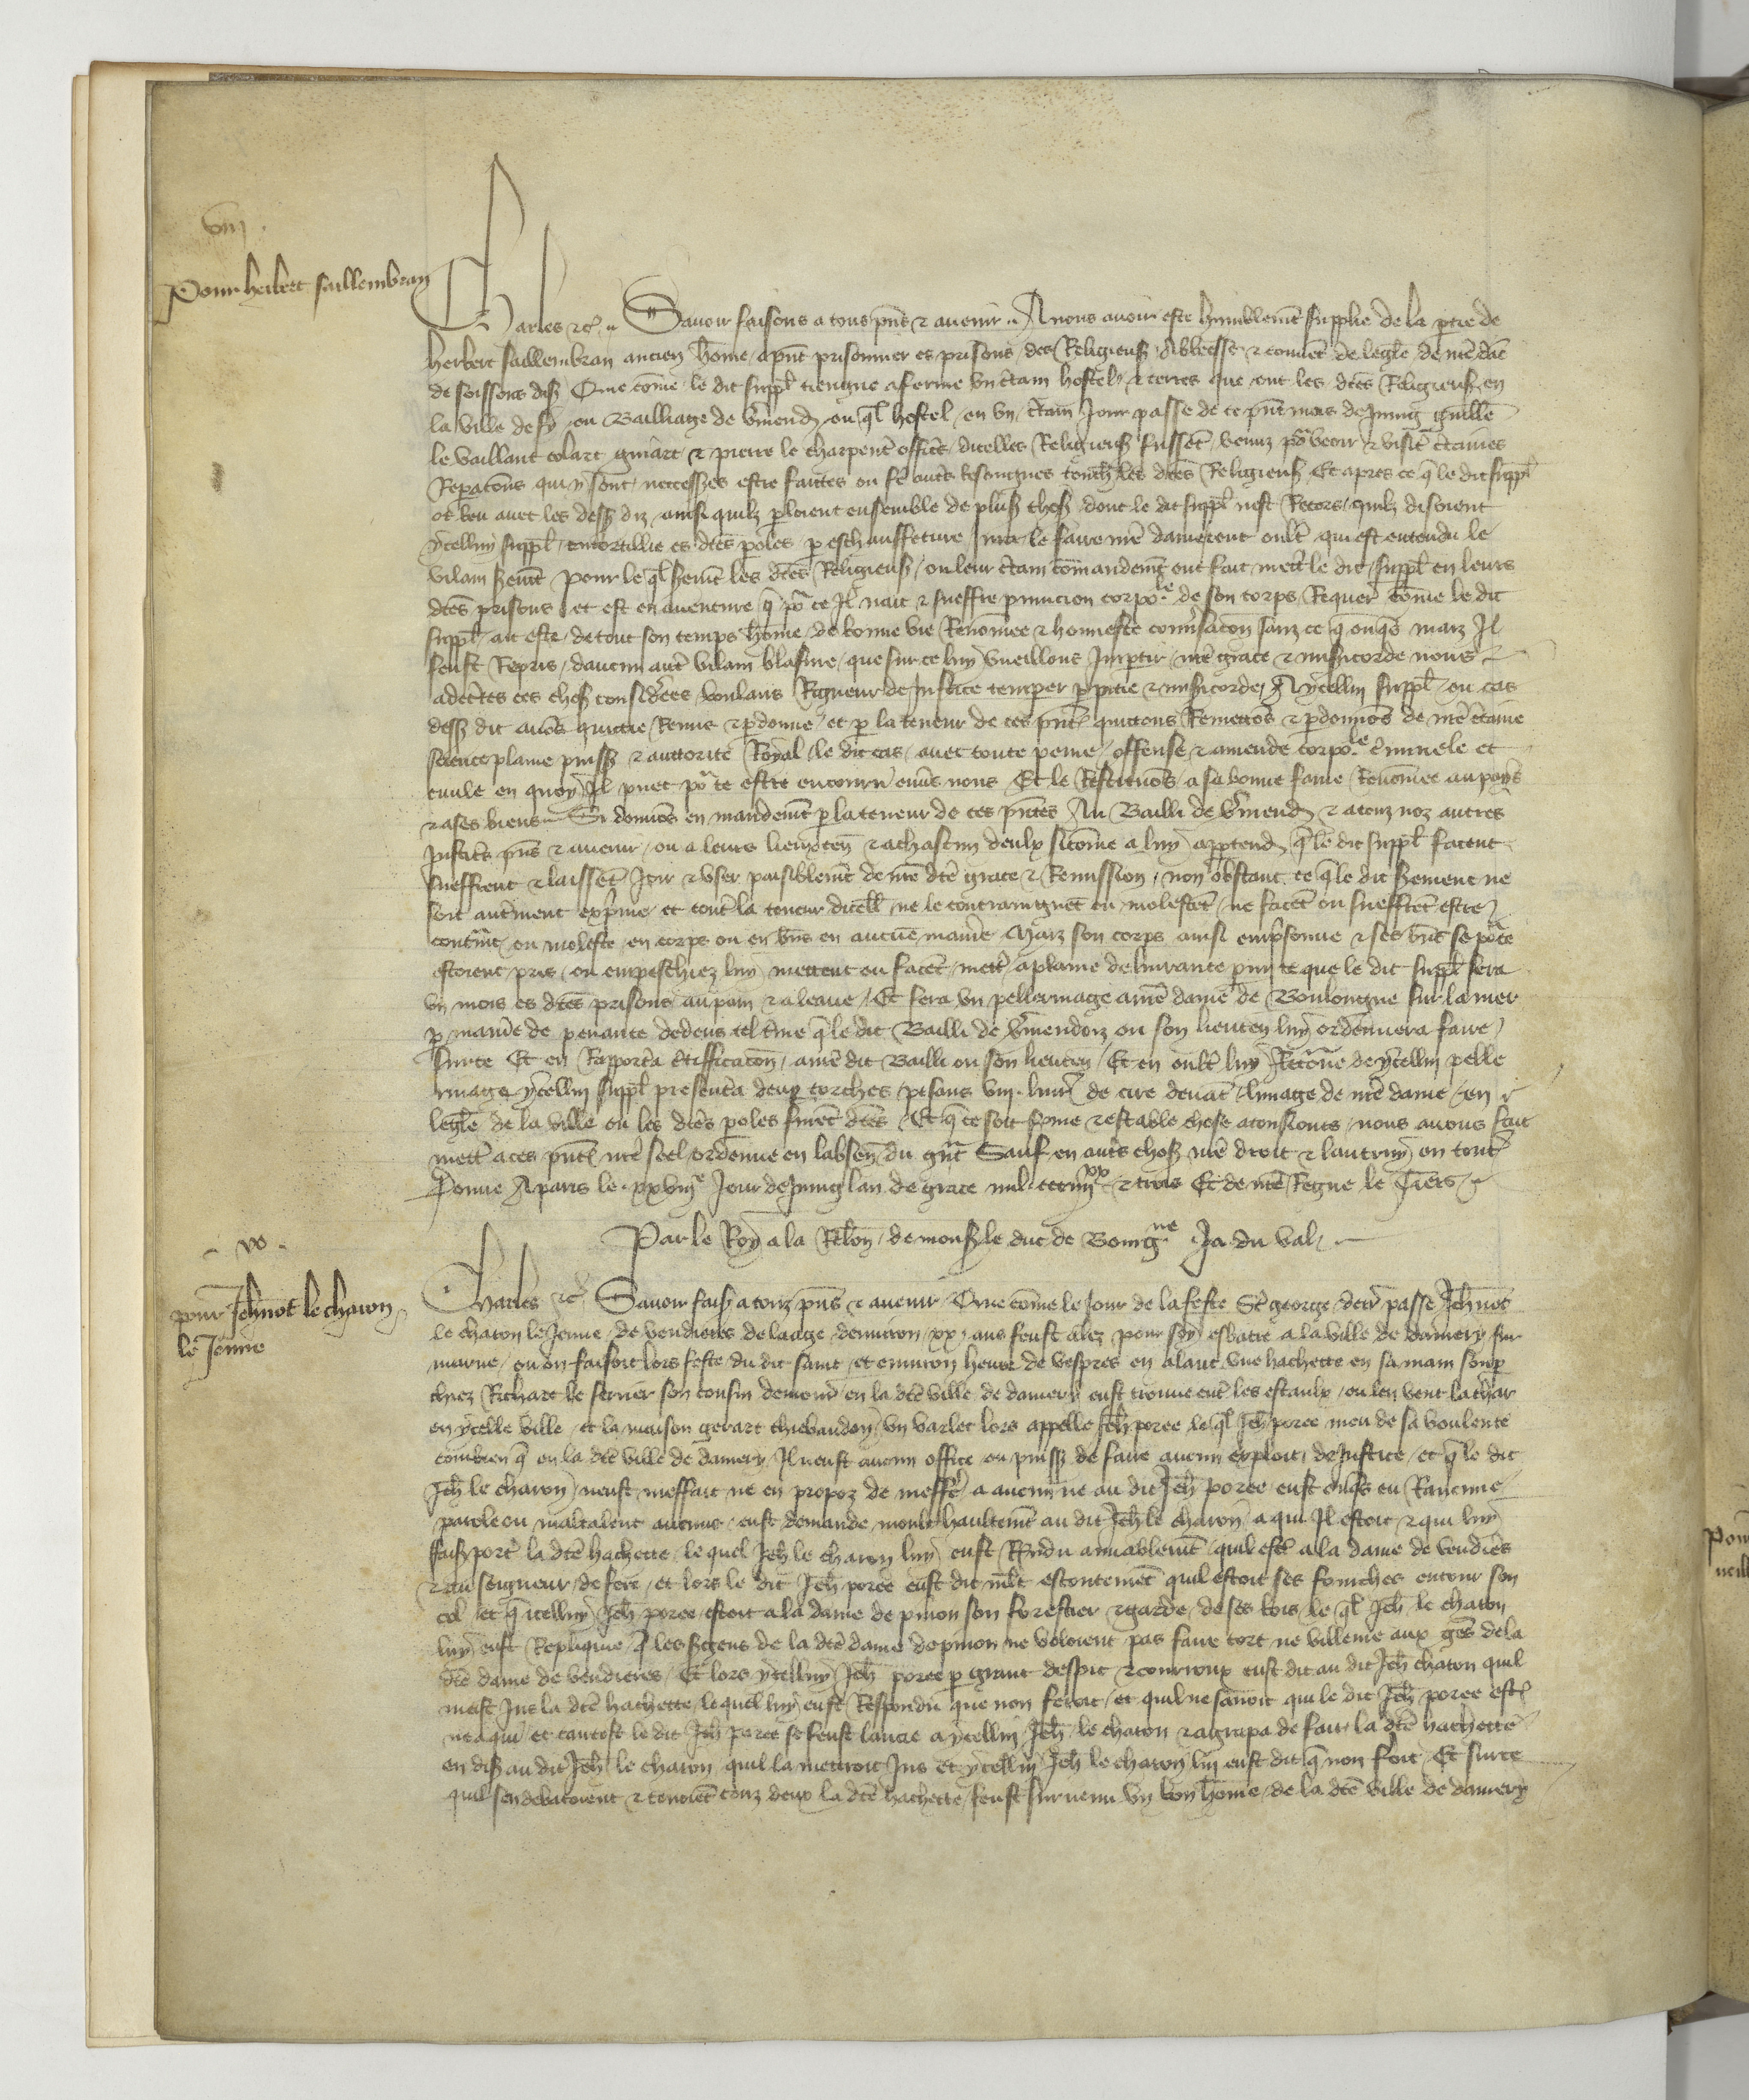 viii
Pour herbert saillembran
Charles etc. Savoir faisons a tous pns et avenir A nous avoir este humblemt supplie de la ptie de
herbert saillembran ancien home apnt prisonnier es prisons des Religieuses abbeesse et couvent de legle de nre dame
de soissons disans Que come le dit suppl tiengne a ferme un ctain hostel et terres que ont les dces Religieuses en
la ville de sy ou Bailliage de vmend ou ql hostel en un ctain jour passe de ce pnt mois de juing guille
le vaillant colart guiart et pierre le charpent offic dicelles Religieuses fussent venuz po veoir et visit ctaines
Repacons qui y sont necesses estre faictes ou fe autres besoingnes touch les dces Religieuses Et apres ce q le dit suppl
ot beu avec les dess diz ainsi quilz ploient ensemble de plus choses dont le dit suppl nest Recors quilz disoient
ycellui suppl entortillie es dces poles p eschauffeture jura le faire nre dame
vilain serment Pour le ql serment les dces Religieuses ou leur ctain comandement ont fait mettre le dit suppl en leurs
dces prisons et est en aventure q po ce Il nait et sueffre punicion corpole de son corps Requer come le dit
suppl ait este de tout son temps home de bonne vie Renomee et honneste conversacon sanz ce q onqs maiz Il
feust Repris daucun autre vilain blasme que sur ce luy vueillons Impartir nre grace et misicorde nous
adectes ces choses considrees voulans Rigueur de Justice temper p pitie et misicorde A ycellui suppl ou cas
dess dit avons quictie Remis et pdonne et p la teneur de ces pntes quittons Remettons et pdonnons de nre ctaine
science plaine puiss et auctorite Royal le dit cas avec toute peine offense et amende corpole criminele et
civile en quoy Il puet po ce estre encouru envers nous Et le Restituons a sa bonne fame Renomee au pays
et a ses biens Si donnons en mandemt p la teneur de ces pntes Au Bailli de vmend et a touz noz autres
Justiciers pns et avenir ou a leurs lieuxten et a chascun deulx si come a luy apptend q le dit suppl facent
sueffrent et laissent joir et user paisiblemt de nre dce grace et Remission non obstant ce q le dit serement ne
soit autrement exprime et contre la teneur dicelle ne le contraingnent ou molestent ne facent ou sueffrent estre
contraint ou moleste en corps ou en biens en aucune maniere Maiz son corps ainsi emprisonne et ses biens se po ce
estoient pris ou empeschiez luy mettent ou facent mettre a plaine delivrance pmi ce que le dit suppl sera
un mois es dces prisons au pain et a leaue Et fera un pellerinage a nre dame de Boulongne sur la mer
p maniere de penance dedens tel tme q le dit Bailli de vmendoiz ou son lieuten luy ordennera faire
sur ce Et en Rapportera ctifficacon a nre dit Bailli ou son lieuten Et en oultre luy Retourne de ycellui pelle
rinage ycellui suppl presentera deux torches pesans viii livres de cire devant lymage de nre dame en
legle de la ville ou les dces poles furent dces Et q ce soit ferme et estable chose a tousiours nous avons fait
mettre a ces pntes nre seel ordenne en labsence du grant Sauf en autres choses nre droit et lautruy en toutes
Donne A paris le xxviiie jour de Juing lan de grace mil ccc iiiixx et trois Et de nre Regne le Tiers
Par le Roy a la Relon de mons le duc de Bourgne Ja. du val
pour Jehnot le charon
le Jeune
Charles etc Savoir fais a touz pns et avenir Que come le Jour de la feste St george derr passe Jehnot
le charon le Jeune de vendieres de laage denviron xx ans feust alez pour soy esbatre a la ville de damery sur
marne ou on faisoit lors feste du dit saint et environ heure de vespres en alant une hachette en sa main soup
chiez Richart le ferrier son cousin demour en la dce ville de damery eust trouve entre les estaulx ou len vent la char
en ycelle ville et la maison gerart thiebaudon un varlet lors appelle Jeh poree le ql Jeh poree meu de sa voulente
combien q en la dce ville de damery Il neust aucun office ou puiss de faire aucun exploit de Justice et q le dit
Jeh le charon neust meffait ne en propoz de meffere a aucun ne au dit Jeh poree eust onqs eu Rancune
parole ou maltalent aucune eust demande moult haultemt au dit Jeh le charon a qui Il estoit et qui luy
fais porter la dce hachette le quel Jeh le charon luy eust Rendu amiablemt quil est a la dame de vendieres
et au seigneur de fere et lors le dit Jeh poree eust dit mlt estoutement quil estoit ses fourches entour son
col et q icelluy Jeh poree estoit a la dame de pinon son forestier et garde de ses bois le ql Jeh le charon
luy eust Replique q les sgens de la dce dame de pinon ne voloient pas faire tort ne villenie aux gens de la
dce dame de vendieres Et lors ycelluy Jeh poree p grant despit et courroux eust dit au dit Jeh charon quil
meist jus la dce hachette lequel luy eust Respondu que non feroit et quil ne savoit qui le dit Jeh poree est
ne a qui et tantost le dit Jeh poree se feust lancie a ycelluy Jeh le charon et agrapa de fait la dce hachette
en dis au dit Jeh le charon quil la mettroit Jus et ycelluy Jeh le charon lui eust dit q non feroit Et sur ce
quil sen debatoient et tenoient touz deux la dce hachette feust survenu un bon home de la dce ville de damery